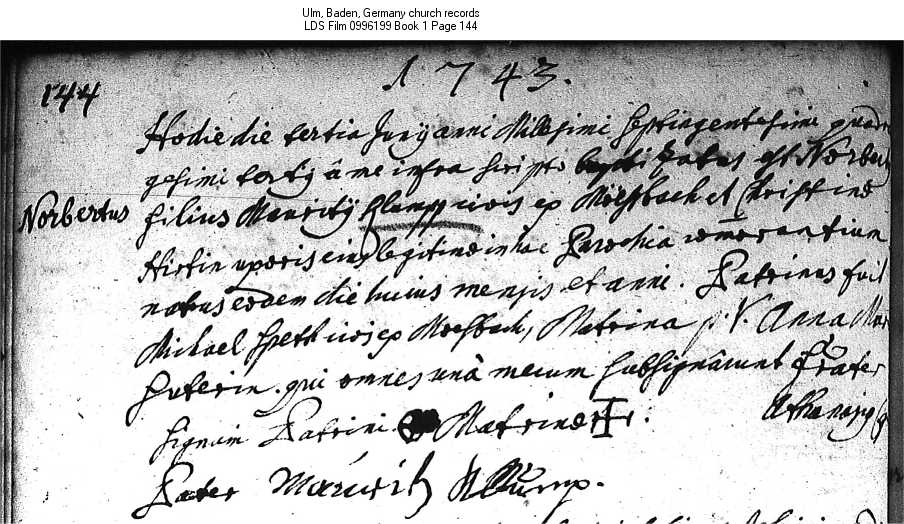 Ulm, Baden, Germany church records
LDS Film 0996199 Book 1 Page 144
144
1743.
Hodie die tertia Junÿ anni Millesimi septingentesimi quadra
gesimi tertÿ â me infra scripto baptizatus est Norbertus
Norbertus
filius Mauritÿ Klump civis ex Mösbach et Christinae
Hirtin uxoris eius legitimae in hac Parochia commorantium
natus eodem die huius mensis et anni. Patrinus fuit
Michael Speth civis ex Mosbach, Matrina p. V. Anna Mar
Suterin. qui omnes unâ mecum subsignârunt Frater
Signum Patrini Matrinae .
Pater Mauritz Klump.